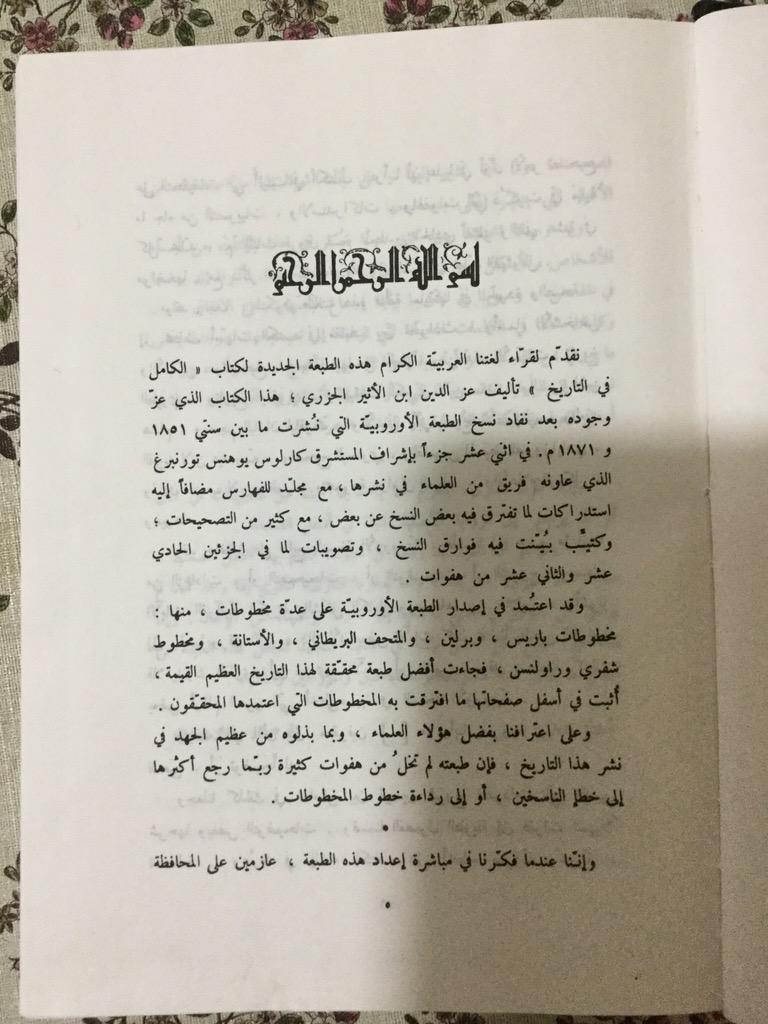 بسم الله الرحمن الرحيم
نقدّم لقرّاء لغتنا العربيّة الكرام هذه الطبعة الجديدة لكتاب « الكامل
في التاريخ » تأليف عز الدين ابن الأثير الجزري ؛ هذا الكتاب الذي عزّ
وجوده بعد نفاد نسخ الطبعة الأوروبيّة التي نُشرت ما بين سنتي ١٨٥١
و ١٨٧١ م . في اثني عشر جزءاً بإشراف المستشرق كارلوس يوهنس تورنبرغ
الذي عاونه فريق من العلماء في نشرها ، مع مجلّد للفهارس مضافاً إليه
استدراكات لما تفترق فيه بعض النسخ عن بعض ، مع كثير من التصحيحات ؛
وكتيّب بُيّنت فيه فوارق النسخ ، وتصويبات لما في الجزئين الحادي
عشر والثاني عشر من هفوات .
وقد اعتُمد في إصدار الطبعة الأوروبيّة على عدّة مخطوطات ، منها :
مخطوطات باريس ، وبرلين ، والمتحف البريطاني ، والأستانة ، ومخطوط
شفري وراولنسن ، فجاءت أفضل طبعة محقّقة لهذا التاريخ العظيم القيمة ،
أُثبت في أسفل صفحاتها ما افترقت به المخطوطات التي اعتمدها المحقّقون .
وعلى اعترافنا بفضل هؤلاء العلماء ، وبما بذلوه من عظيم الجهد في
نشر هذا التاريخ ، فإن طبعته لم تخلُ من هفوات كثيرة ربّما رجع أكثرها
إلى خطإ الناسخين ، أو إلى رداءة خطوط المخطوطات .
وإنّنا عندما فكّرنا في مباشرة إعداد هذه الطبعة ، عازمين على المحافظة
٥